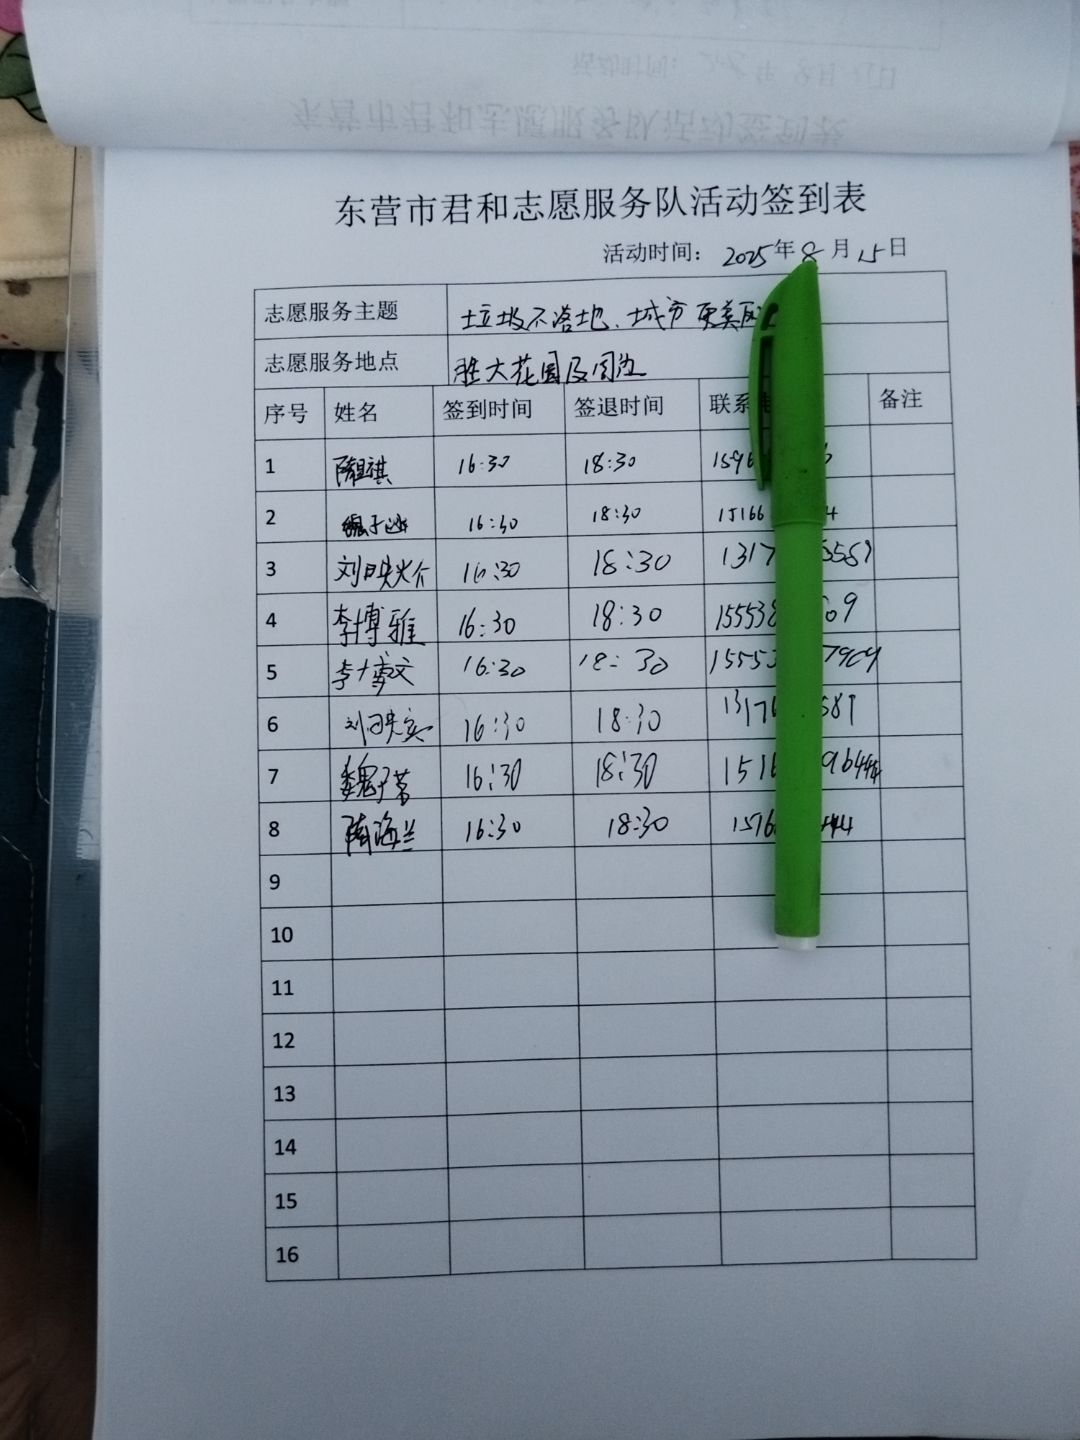 东营市君和志愿服务队活动签到表
活动时间： 2025年8月15日
志愿服务主题 垃圾不落地、城市更美
志愿服务地点 胜大花园及周边
序号 姓名 签到时间 签退时间 联系 备注
1 16:30 18:30
2 16:30 18:30 15166
3 16:30 18:30 1317 5559
4 李博雅 16:30 18:30 155538 09
5 李博文 16:30 18:30
6 16:30 18:30 1317
7 魏子茗 16:30 18:30 151
8 隋海兰 16:30 18:30
9
10
11
12
13
14
15
16